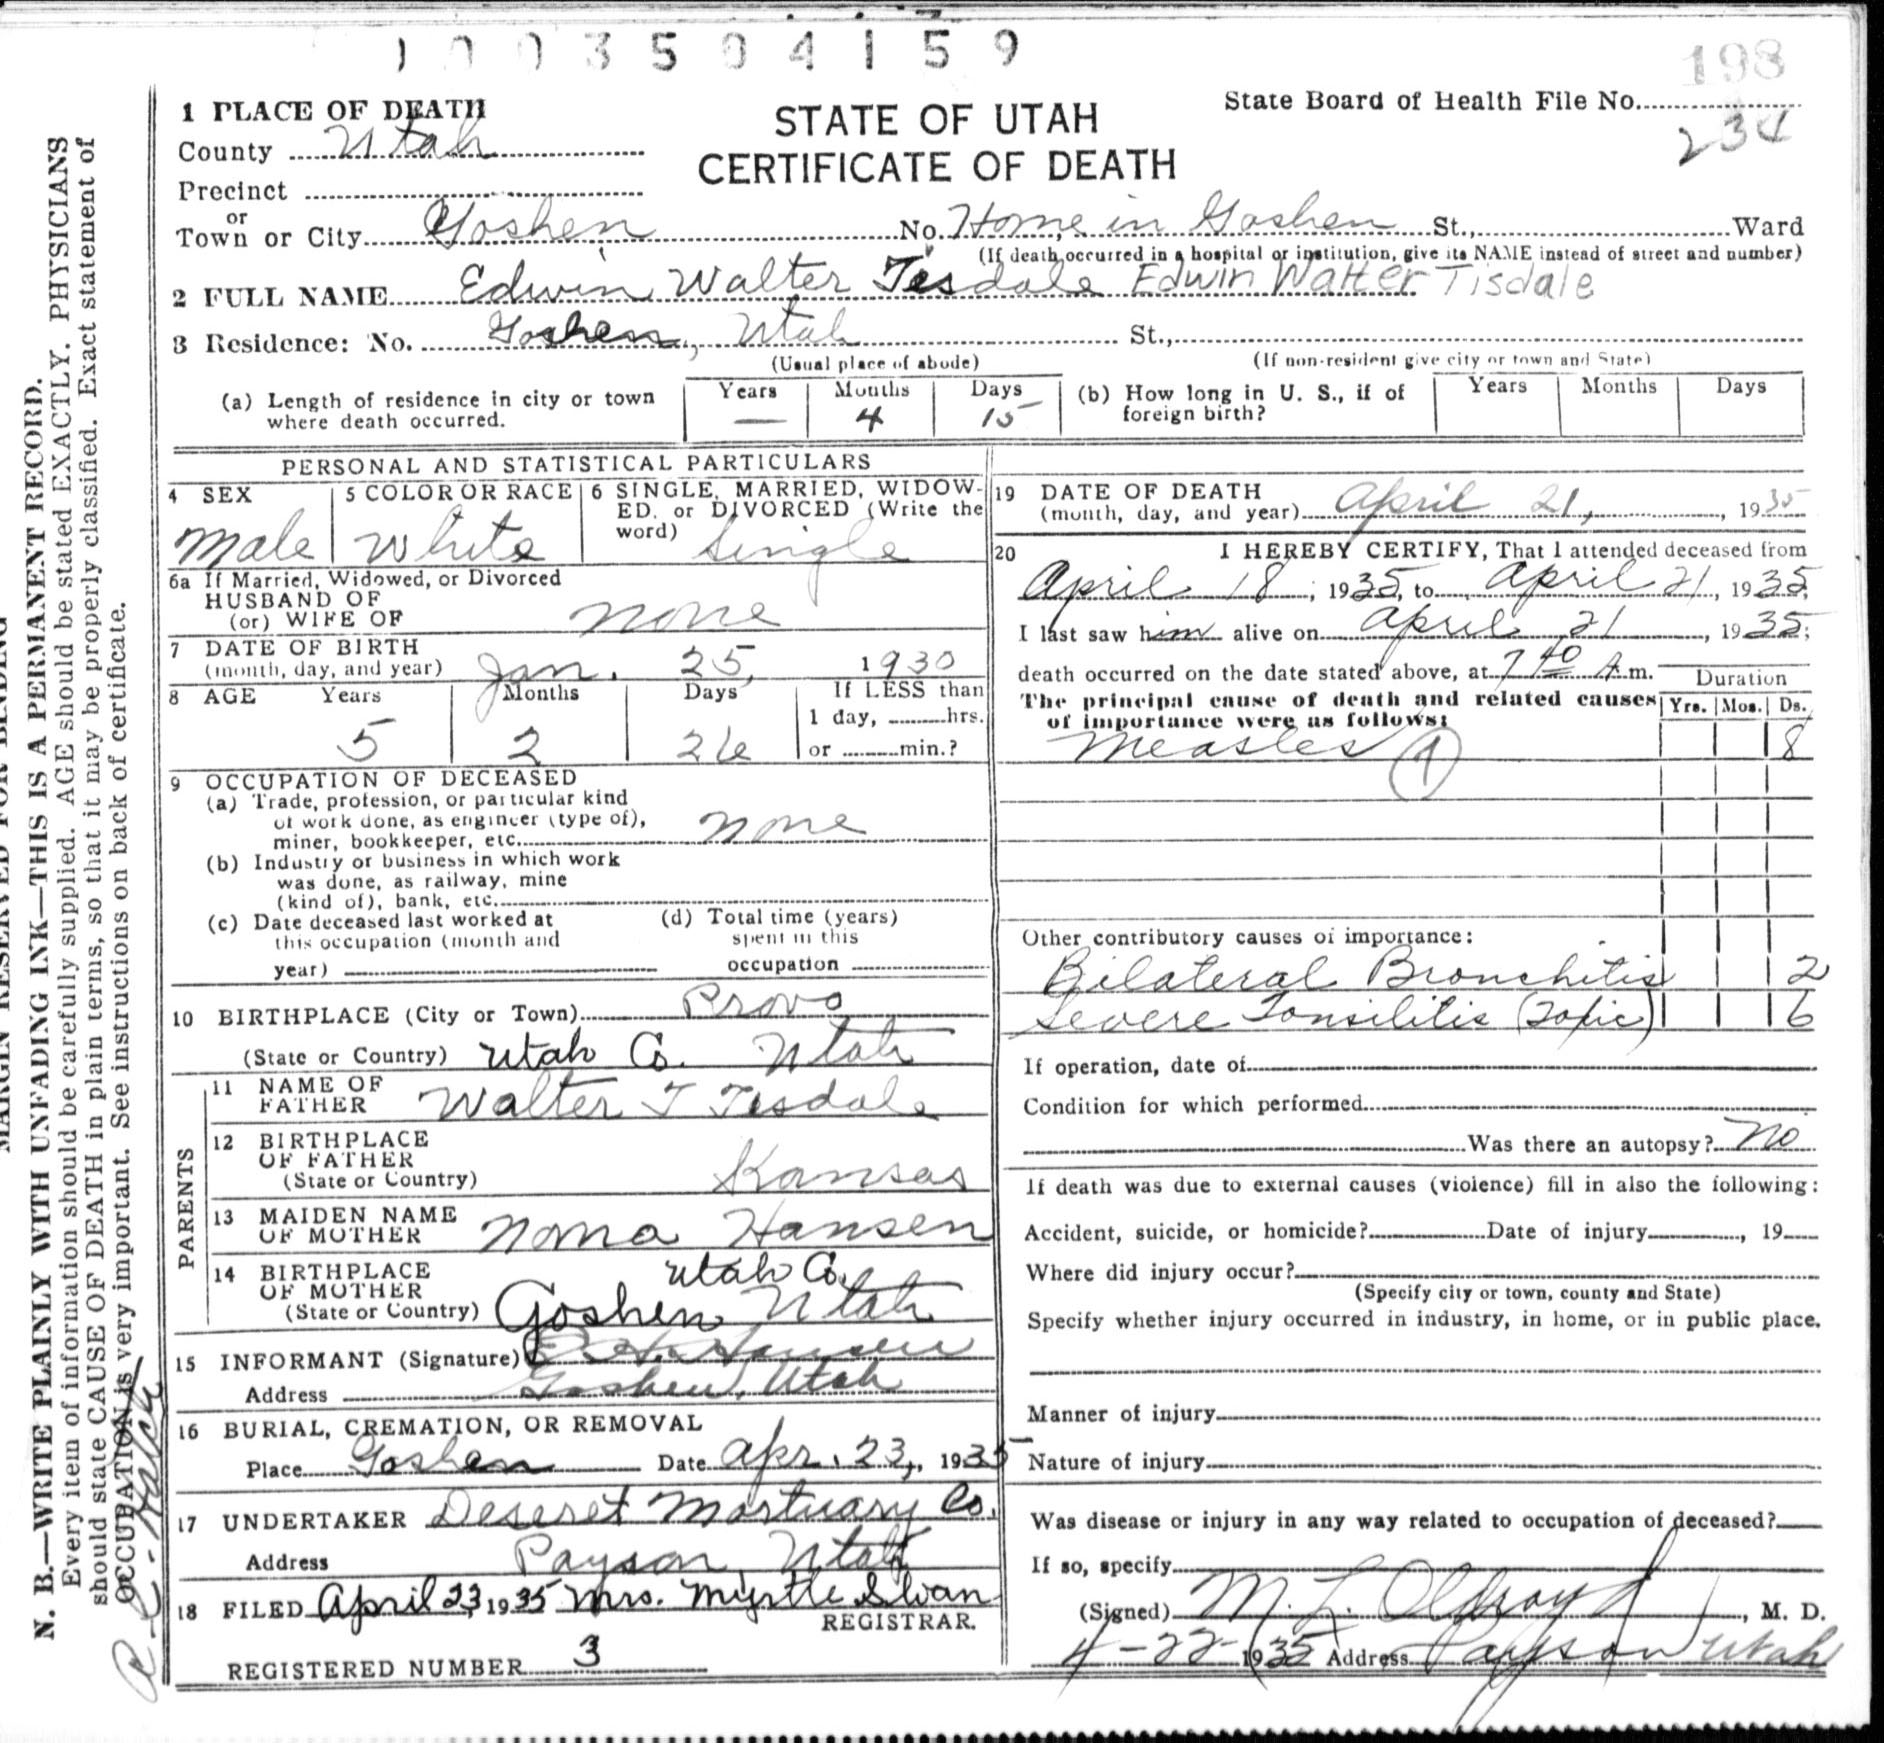 1003504159
198
1 PLACE OF DEATH
STATE OF UTAH
CERTIFICATE OF DEATH
State Board of Health File No.
234
County Utah
Precinct
or
Town or City Goshen No. Home in Goshen St., Ward
(If death occurred in a hospital or institution, give its NAME instead of street and number)
2 FULL NAME Edwin Walter Tisdale Edwin Walter Tisdale
3 Residence: No. Goshen, Utah St.,
(Usual place of abode) (If non-resident give city or town and State)
(a) Length of residence in city or town where death occurred. Years — Months 4 Days 15
(b) How long in U. S., if of foreign birth? Years Months Days
PERSONAL AND STATISTICAL PARTICULARS
4 SEX Male
5 COLOR OR RACE White
6 SINGLE, MARRIED, WIDOWED, or DIVORCED (Write the word) Single
6a If Married, Widowed, or Divorced
HUSBAND OF
(or) WIFE OF None
7 DATE OF BIRTH
(month, day, and year) Jan. 25, 1930
8 AGE Years 5 Months 2 Days 26 If LESS than
1 day, hrs.
or min.?
9 OCCUPATION OF DECEASED
(a) Trade, profession, or particular kind
of work done, as engineer (type of),
miner, bookkeeper, etc. None
(b) Industry or business in which work
was done, as railway, mine
(kind of), bank, etc.
(c) Date deceased last worked at
this occupation (month and
year)
(d) Total time (years)
spent in this
occupation
10 BIRTHPLACE (City or Town) Provo
(State or Country) Utah Co. Utah
PARENTS
11 NAME OF
FATHER Walter T Tisdale
12 BIRTHPLACE
OF FATHER
(State or Country) Kansas
13 MAIDEN NAME
OF MOTHER Nona Hansen
14 BIRTHPLACE
OF MOTHER Utah Co.
(State or Country) Goshen Utah
15 INFORMANT (Signature) E. H. Hansen
Address Goshen, Utah
16 BURIAL, CREMATION, OR REMOVAL
Place Goshen Date Apr. 23, 1935
17 UNDERTAKER Deseret Mortuary Co.
Address Payson, Utah
18 FILED April 23, 1935 Mrs. Myrtle Sloan
REGISTRAR.
REGISTERED NUMBER 3
19 DATE OF DEATH
(month, day, and year) April 21, 1935
20 I HEREBY CERTIFY, That I attended deceased from
April 18, 1935, to April 21, 1935,
I last saw him alive on April 21, 1935;
death occurred on the date stated above, at 7 40 A.m.
Duration
The principal cause of death and related causes
of importance were as follows:
Yrs. Mos. Ds.
Measles 1 8
Other contributory causes of importance:
Bilateral Bronchitis 2
Severe Tonsilitis 6
If operation, date of
Condition for which performed
Was there an autopsy? No
If death was due to external causes (violence) fill in also the following:
Accident, suicide, or homicide? Date of injury , 19
Where did injury occur?
(Specify city or town, county and State)
Specify whether injury occurred in industry, in home, or in public place.
Manner of injury
Nature of injury
Was disease or injury in any way related to occupation of deceased?
If so, specify
(Signed) M. L. Oldroyd, M. D.
4-22-1935 Address Payson Utah
MARGIN RESERVED FOR BINDING
N. B.—WRITE PLAINLY WITH UNFADING INK—THIS IS A PERMANENT RECORD.
Every item of information should be carefully supplied. AGE should be stated EXACTLY. PHYSICIANS
should state CAUSE OF DEATH in plain terms, so that it may be properly classified. Exact statement of
OCCUPATION is very important. See instructions on back of certificate.